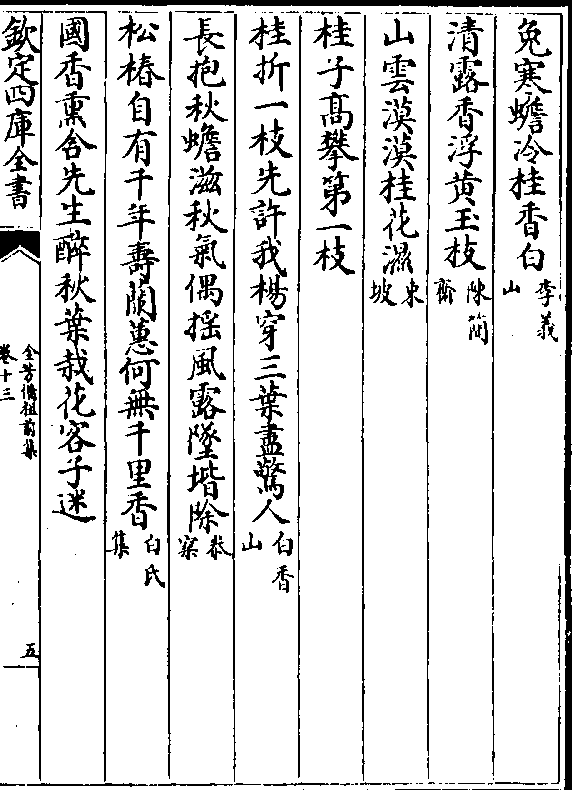 兔寒蟾冷桂香白李義山
清露香浮黄玉枝陳簡齋
山雲漠漠桂花濕東坡
桂子髙攀第一枝
桂折一枝先許我楊穿三葉盡驚人白香山
長抱秋蟾滋秋氣偶揺風露墜堦除蔡寀
松椿自有千年壽蘭蕙何無千里香白氏集
國香熏合先生醉秋葉栽花容子迷
欽定四庫全書
全芳備祖前集
卷十三
五